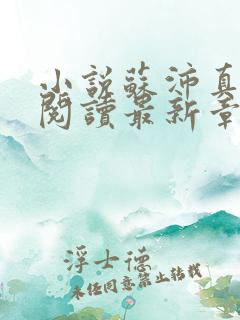 小說蘇沛真
閱讀最新章
浮士德
未经同意禁止转载